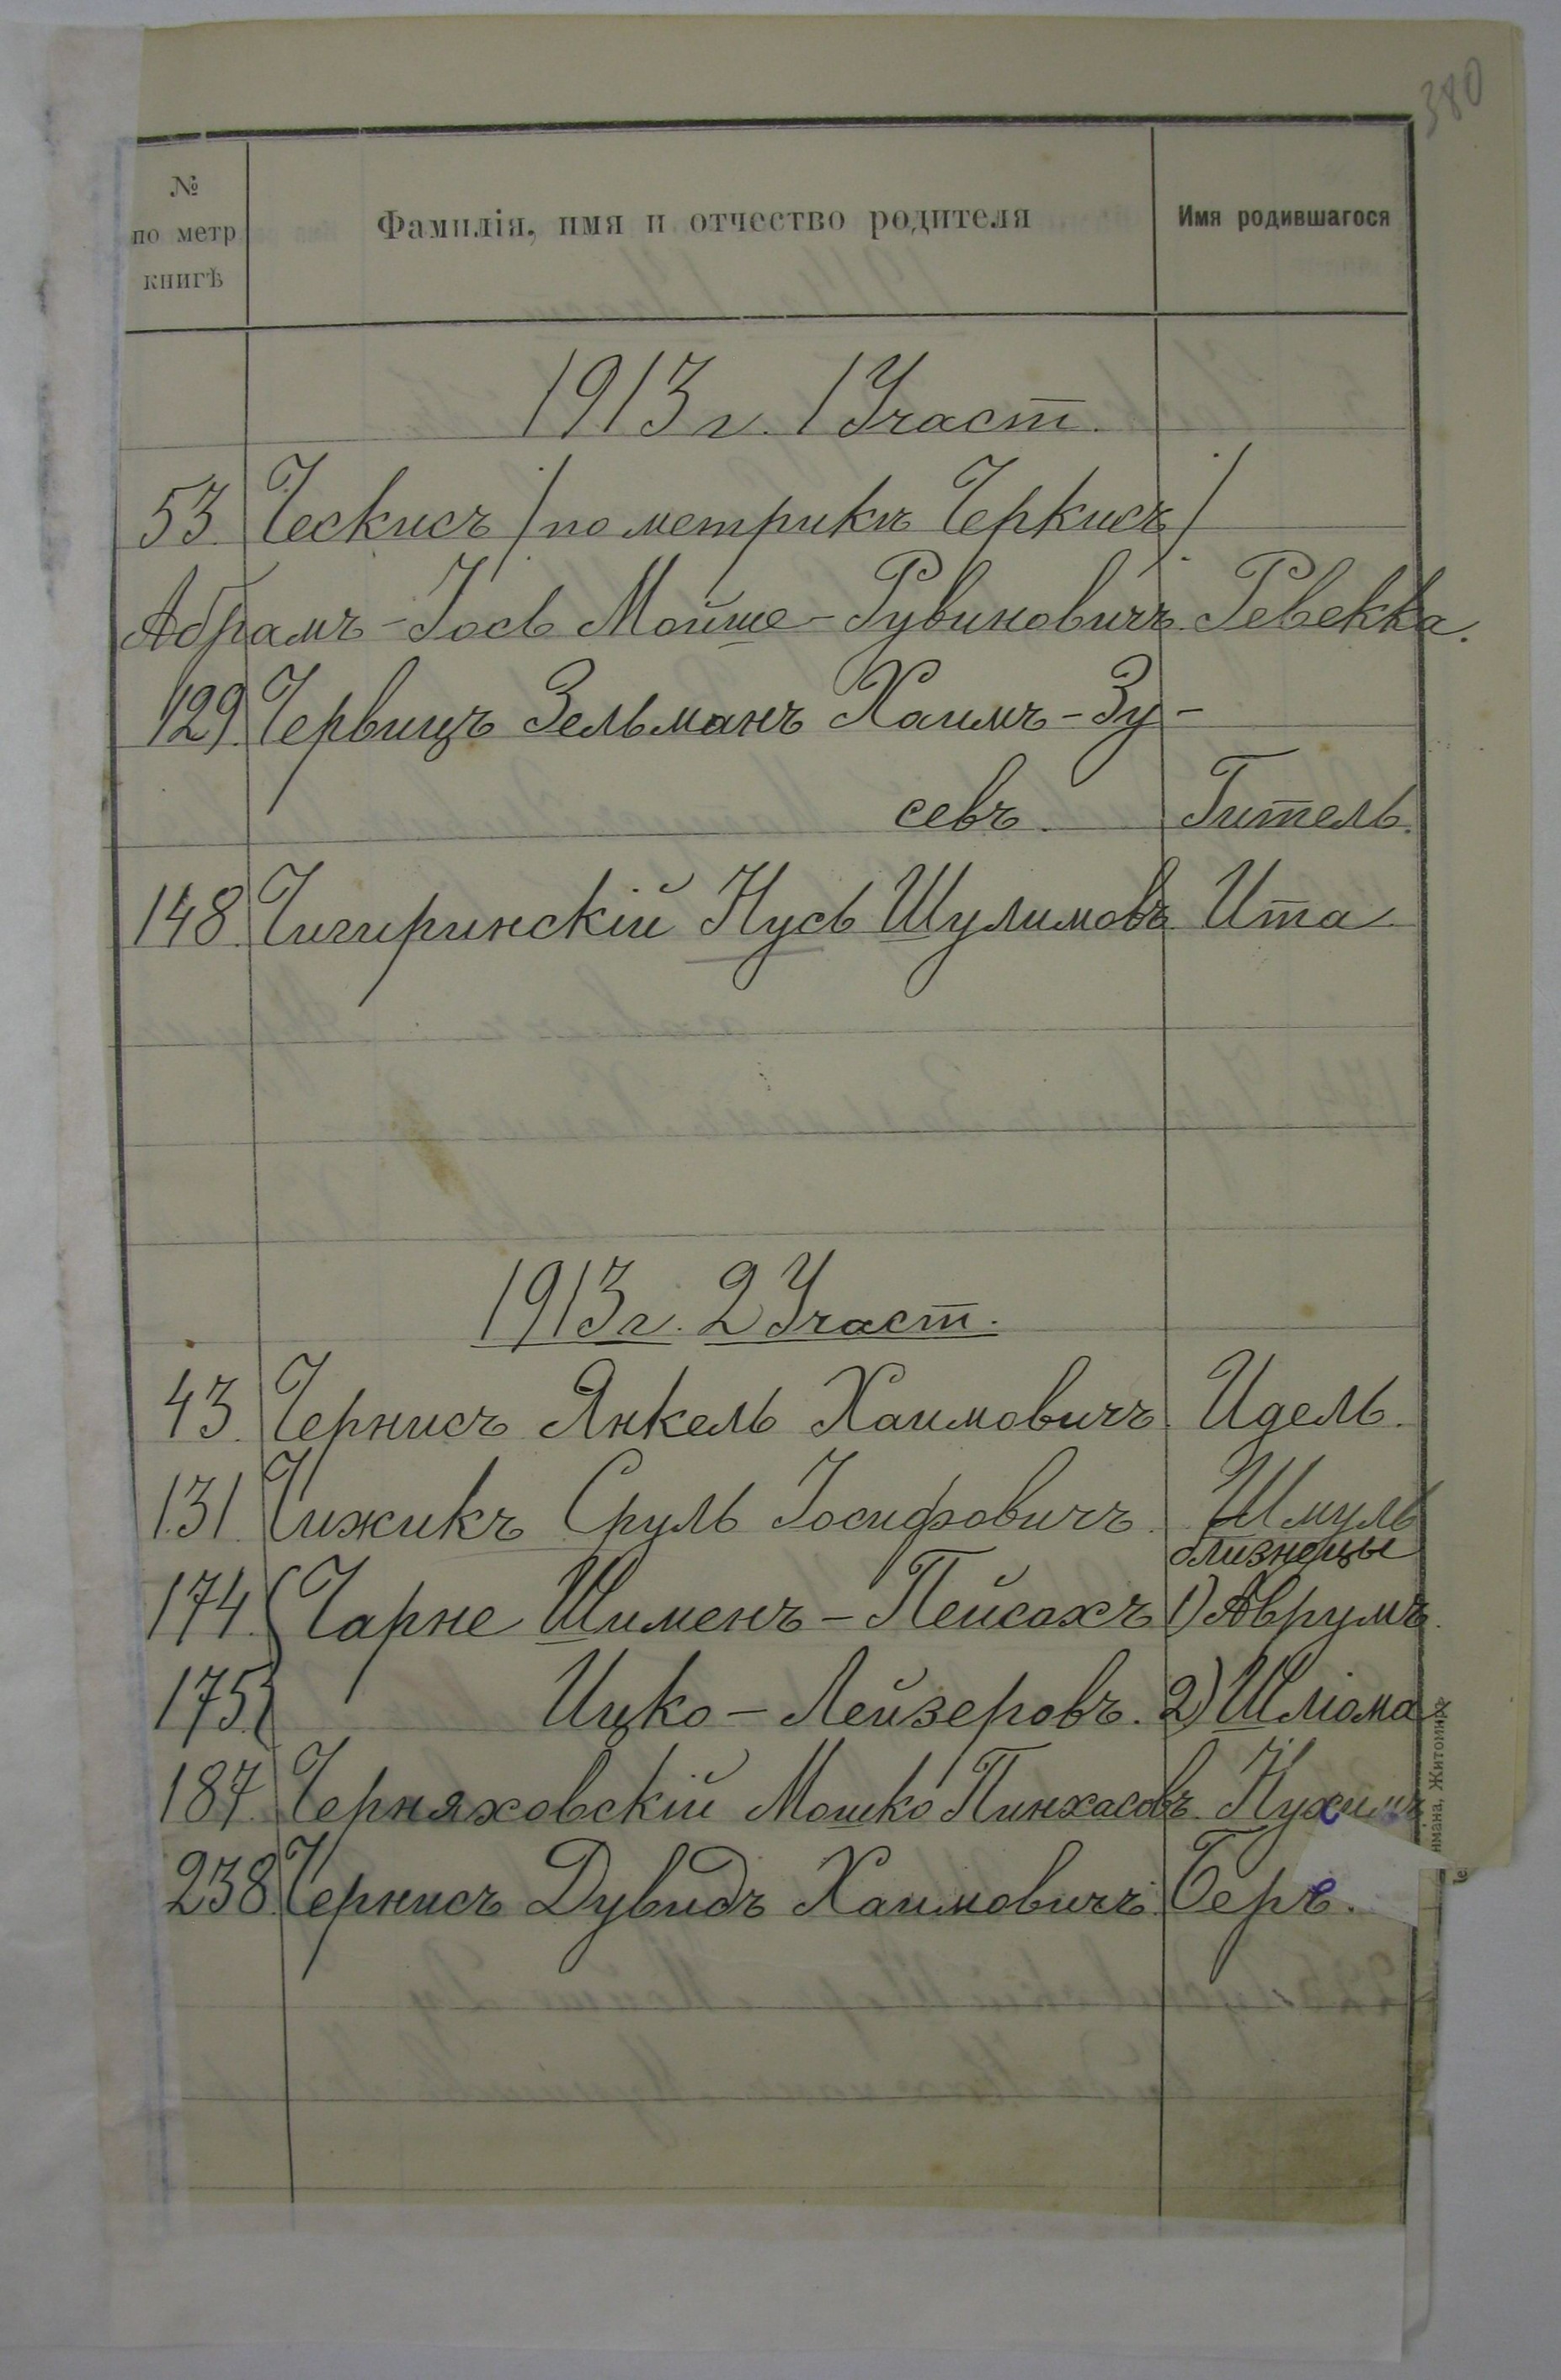 380
№
по метр
книгѣ
Фамилія, имя и отчество родителя
Имя родившагося
1913 г. 1 Участ.
53. Ческисъ /по метрикѣ Черкисъ/
Абрамъ-Іось Мойше-Рувиновичъ Ревекка.
129. Червицъ Зельманъ Хаимъ-Зу-
севъ. Гитель.
148. Чигиринскій Нусь Шулимовъ Ита
1913 г. 2 Участ.
43. Чернисъ Янкель Хаимовичъ. Идель.
131 Чижикъ Сруль Іосифовичъ. Шмуль
близнецы
174. Чарне Шименъ-Пейсахъ 1) Аврумъ.
175 Ицко-Лейзеровъ. 2) Шліома
187. Черняховскій Мошко Пинхасовъ. Нухимъ
238. Чернисъ Дувидъ Хаимовичъ. Беръ.
Житомиръ